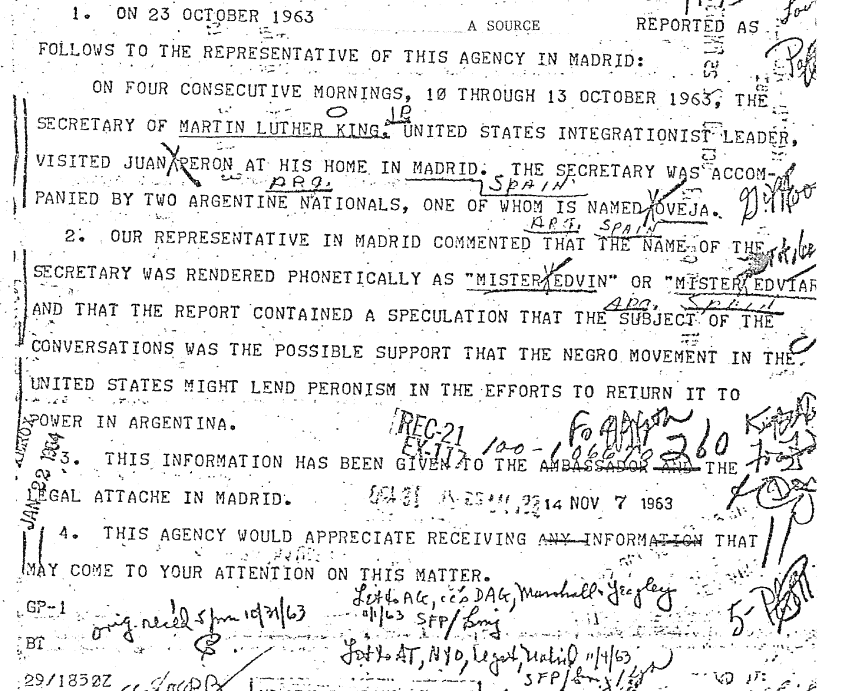 1. ON 23 OCTOBER 1963 A SOURCE REPORTED AS
FOLLOWS TO THE REPRESENTATIVE OF THIS AGENCY IN MADRID:
ON FOUR CONSECUTIVE MORNINGS, 10 THROUGH 13 OCTOBER 1963, THE
O JR
SECRETARY OF MARTIN LUTHER KING. UNITED STATES INTEGRATIONIST LEADER,
VISITED JUAN PERON AT HIS HOME IN MADRID. THE SECRETARY WAS ACCOM-
ARG. SPAIN
PANIED BY TWO ARGENTINE NATIONALS, ONE OF WHOM IS NAMED OVEJA.
ARG. SPAIN
2. OUR REPRESENTATIVE IN MADRID COMMENTED THAT THE NAME OF THE
SECRETARY WAS RENDERED PHONETICALLY AS "MISTER EDVIN" OR "MISTER EDVIAR
ARG. SPAIN
AND THAT THE REPORT CONTAINED A SPECULATION THAT THE SUBJECT OF THE
CONVERSATIONS WAS THE POSSIBLE SUPPORT THAT THE NEGRO MOVEMENT IN THE
UNITED STATES MIGHT LEND PERONISM IN THE EFFORTS TO RETURN IT TO
POWER IN ARGENTINA.
REC-21
EX-117 100-106670 260
3. THIS INFORMATION HAS BEEN GIVEN TO THE AMBASSADOR AND THE
LEGAL ATTACHE IN MADRID. 14 NOV 7 1963
XEROX
JAN 22 1964
4. THIS AGENCY WOULD APPRECIATE RECEIVING ANY INFORMATION THAT
MAY COME TO YOUR ATTENTION ON THIS MATTER.
GP-1
orig. rec'd 5pm 10/31/63
Let to AG, cc's DAG, Marshall & Yeagley
11/1/63 SFP/
BT
Let to AT, NYO, Legat, Madrid 11/4/63
SFP/
29/1830Z